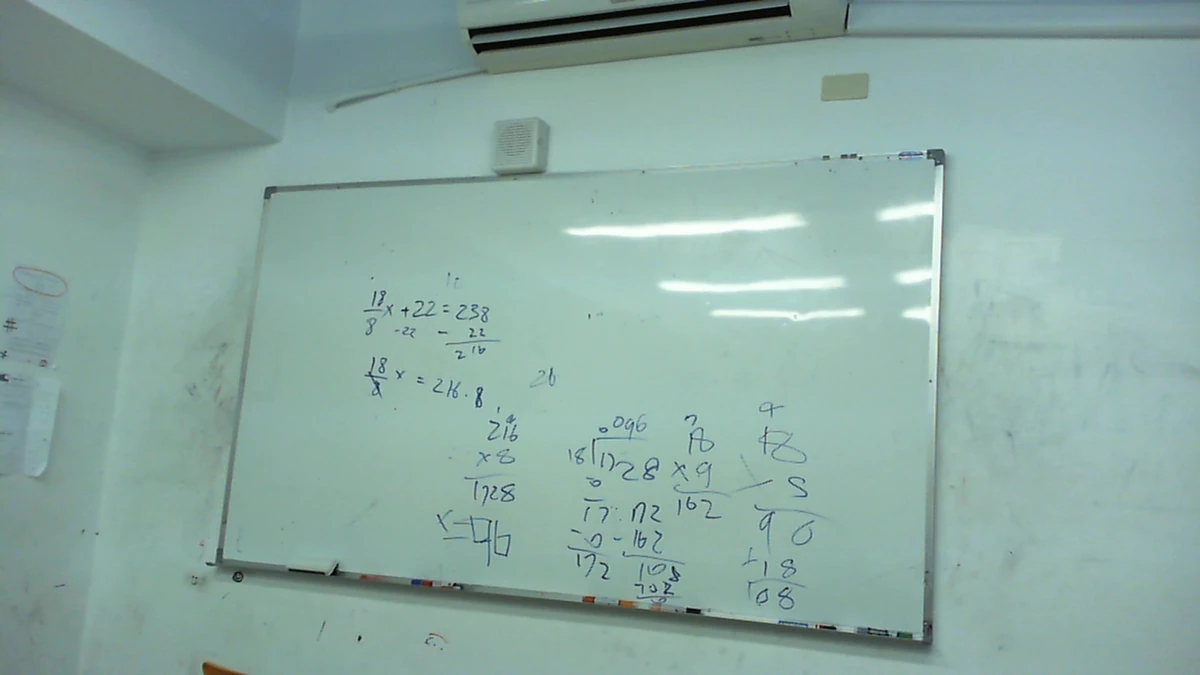 18/8 x + 22 = 238
-22 - 22
216
18/8 x = 216 . 8
26
216
x 8
1728
x = 96
0096
18 1728
0
17 : 172
- 0 - 162
172 108
18
x 9
162
18
5
90
+ 18
108